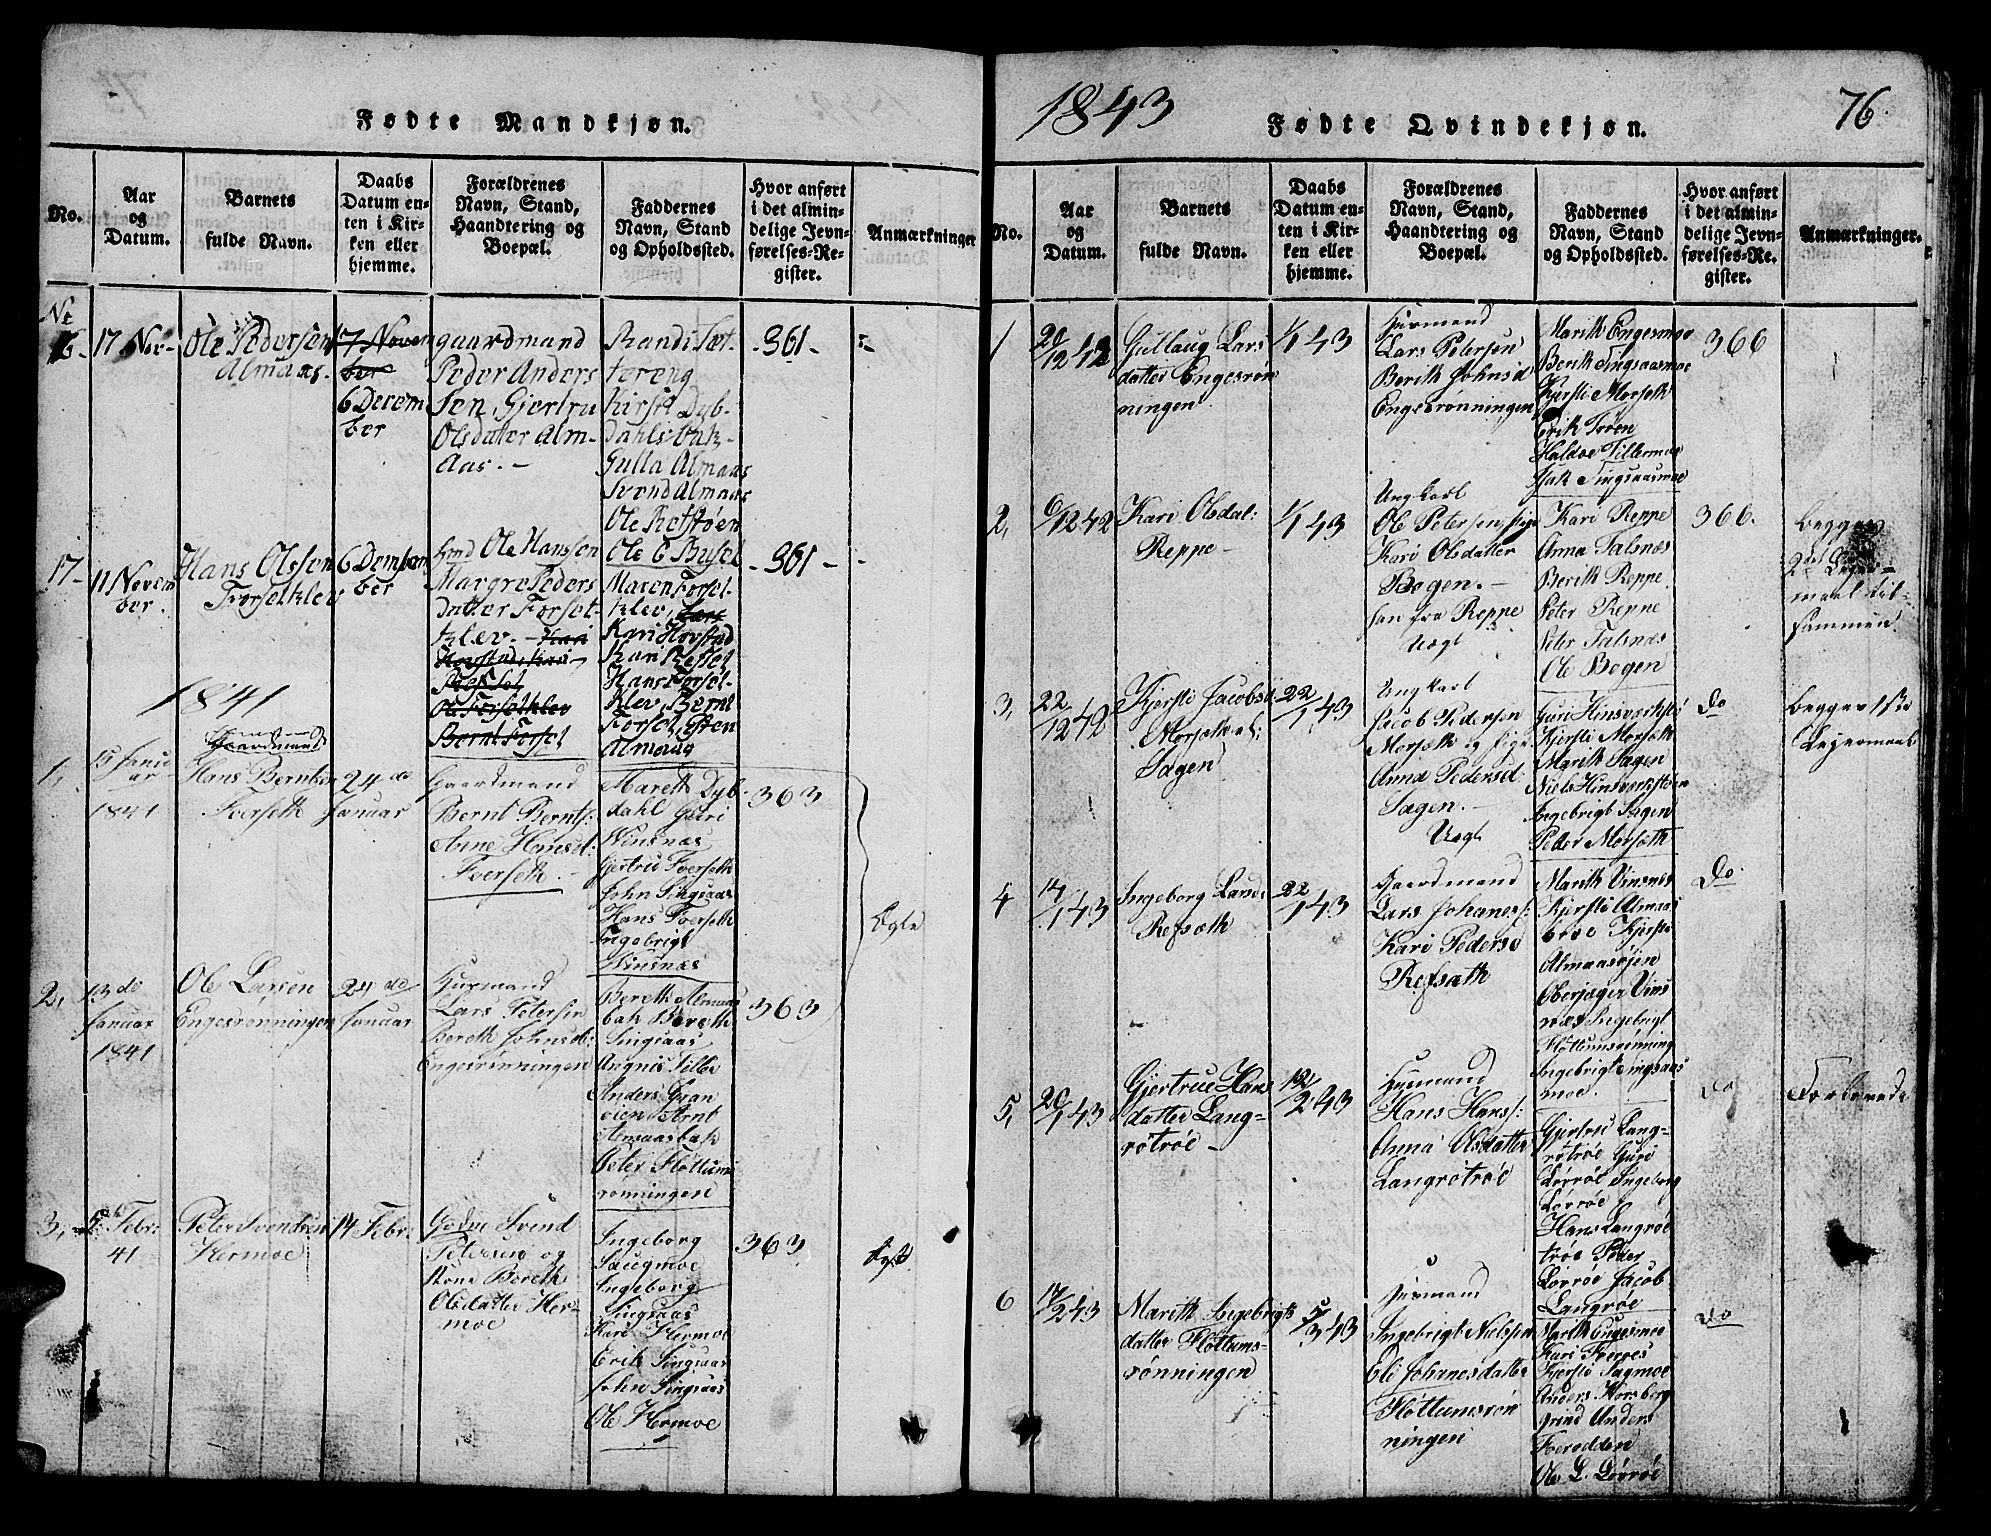 Fødte Mandkjøn.
No.
Aar
og
Datum.
Barnets
fulde Navn.
Daabs
Datum en-
ten i Kir-
ken eller
hjemme.
Forældrenes
Navn, Stand,
Haandtering og
Boepæl.
Faddernes
Navn, Stand
og Opholdssted.
Hvor anført
i det almin-
delige Jevn-
førelses-Re-
gister.
Anmærkninger
16-
17 Nov-
Ole Pedersen
Almaas.
17 Novem
ber
6 Decem
ber
gaardmand
Peder Anders
Sen, Gjertru
Olsdater Alm-
Aas. -
Randi Sæt-
tereng
Kirsti Dyb-
Dahls bak-
Gulla Almaas
Svend Almaas
Ole Rotstøen
361-
17-
11 Novem
ber.
Hans Olsen
Forsetklev
6 Demsem
ber
Ole Hanssen
Margre Peders
Datter Forset-
klev. - Kari
Hovstad, Kari
Refset
Ole Forsetklev
Bernt Forset
Ole G Busel
Maren Forset-
klev, Lars
Kari Hovstad
Kari Refset
Hans Forset-
klev, Bernt
Forset, Esten
Almaas
361-
1841
1,
15 Janu
ar
1841
Gaardmand
Hans Berntsen
Forseth
24 de
Januar
Gaardmand
Bernt Bernts:
Anne Hansd:
Forseth. -
Mareth Dyb-
dahl Guri
Winsnæs
Gjertru Forseth
John Singsaas
Hans Forseth
Ingebrigt
Winsnæs
363
Ægte
2,
13 de
Januar
1841
Ole Larsen
Engesrønningen
24 de
Januar
Huusmand
Lars Petersen
Bereth Johnsd:
Engesrønningen
Bereth Almaas
bak Bereth
Singsaas
Angnis Tille
Anders Gran
eien Arnt
Almaasbak
Peter Fløttums
rønningen
363
3,
5 Febr:
41
Peter Svendsen
Hermoe
14 Febr:
Gdbr Svend
Petersen og
Kone Bereth
Olsdatter Her-
moe
Ingeborg
Haugmoe
Ingeborg
Singsaas
Kari Hermoe
Erik Singsaas
John Singsaas
Ole Hermoe
363
Ægte
1843
Fødte Qvindekjøn.
76
No.
Aar
og
Datum.
Barnets
fulde Navn.
Daabs
Datum en-
ten i Kir-
ken eller
hjemme.
Forældrenes
Navn, Stand,
Haandtering og
Boepæl.
Faddernes
Navn, Stand
og Opholdssted.
Hvor anført
i det almin-
delige Jevn-
førelses-Re-
gister.
Anmærkninger.
1
20/12 42
Gullaug Lars
datter Engesrøn
ningen
1/1 43
Huusmand
Lars Petersen
Berith Johnsd
Engesrønningen
Marith Engesmoe
Berith Singsaasmoe
Kjersti Morseth
Erik Trøen
Haldoe Tillermoe
Isak Singsaasmoe
366
2,
6/12 42
Kari Olsdat:
Reppe-
1/1 43
Ungkarl
Ole Petersen
Kari Olsdatter
Bogen. -
han fra Reppe
Uægt
Kari Reppe
Anna Talsnæs
Berith Reppe
Peter Reppe
Peter Talsnæs
Ole Bogen
366.
begges
2det Leier-
maal til-
sammen.
3,
22/12 42
Kjersti Jacobsd
Morseth el:
Sagen
22/1 43
Ungkarl
Jacob Pedersen
Morseth og Pige
Anne Pedersd:
Sagen. -
Uægt
Guri Hinsverkstø
Kjersti Morseth
Marith Sagen
Niels Hinsverkstøen
Ingebrigt Sagen
Peder Morseth
Do
begges 1ste
Leyermaal
4
14/1 43
Ingeborg Larsd
Refsæth
22/1 43
Gaardmand
Lars Johanes:
Kari Pedersd
Refsæth
Marith Vinsnes
Kjersti Almaas
broe Kjersti
Almaasøjen
Oberjager Vins
næs Ingebrigt
Fløttumsrønning
Ingebrigt Singsaas
moe.
Do.
5,
20/1 43
Gjertrue Hans
datter Lang-
røtrøe -
12/2 43
Huusmand
Hans Hans:
Anna Olsdatter
Langrøtrøe
Gjertru Lang-
røtrøe Guri
Løvrøe Ingeborg
Løvrøe
Hans Langrø
trøe Peder
Løvrøe Jacob
Langrøe
Do
6
17/2 43
Marith Ingebrigts
datter Fløttums-
rønningen
5/3 43
Huusmand
Ingebrigt Nielssen
Eli Johanesdatter
Fløttumsrøn
ningen
Marith Engesmoe
Kari
Kjersti Sagmoe
Anders Korsberg
grind Anders
Foerodden
Ole L. Løvrøe
Do